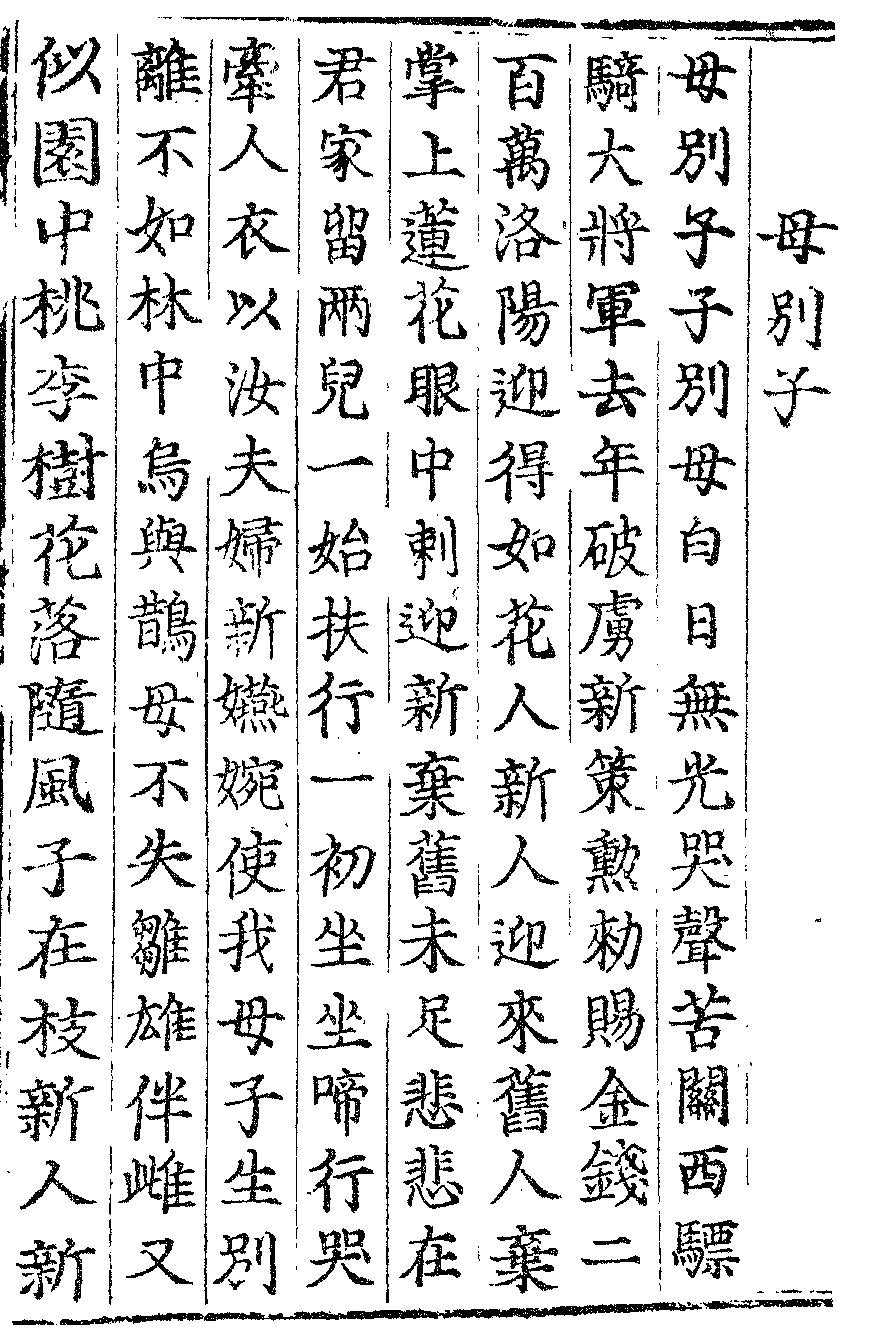 母別子
母別子子別母白日無光哭聲苦關西驃
騎大將軍去年破虜新策勲勑賜金錢二
百萬洛陽迎得如花人新人迎來舊人棄
掌上蓮花眼中刺迎新棄舊未足悲悲在
君家留兩兒一始扶行一初坐坐啼行哭
牽人衣以汝夫婦新嬿婉使我母子生別
離不如林中烏與鵲母不失雛雄伴雌又
似園中桃李樹花落隨風子在枝新人新